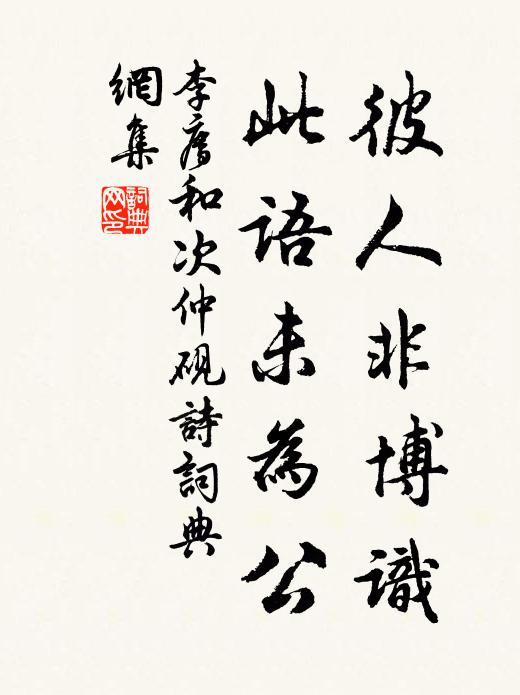 彼人非博識
此語未為公
李廌和次仲硯詩詞典
網集
詞典網印